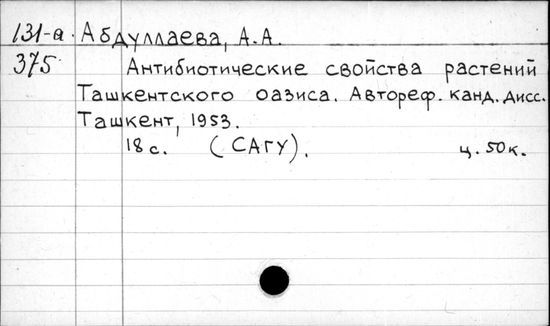 131-а Абдуллаева, А.А.
375 Антибиотические свойства растений
Ташкентского оазиса. Автореф. канд. дисс.
Ташкент, 1953.
18 с. (САГУ). ц. 50 к.